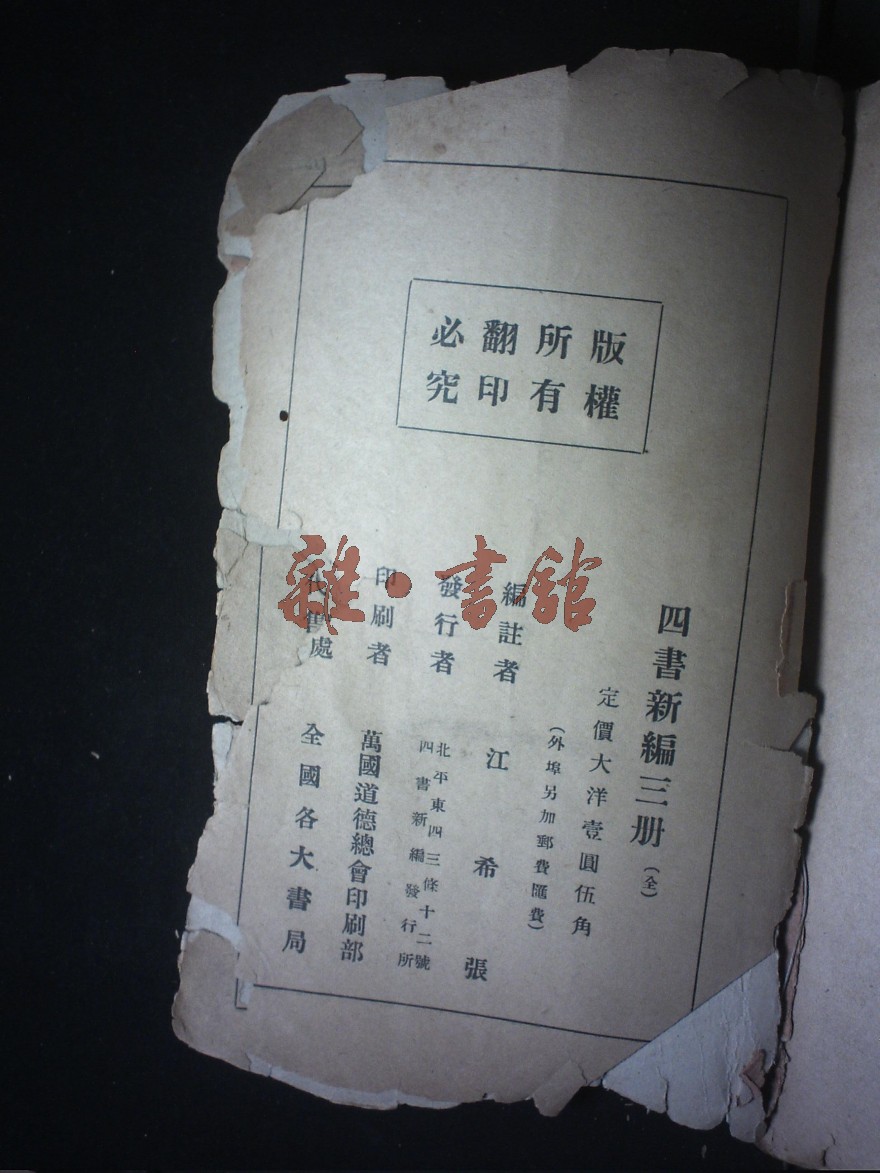 版權
所有
翻印
必究
四書新編三册（全）
定價大洋壹圓伍角
（外埠另加郵費匯費）
編註者 江希張
發行者 北平東四三條十二號
四書新編發行所
印刷者 萬國道德總會印刷部
售處 全國各大書局
雜·書館